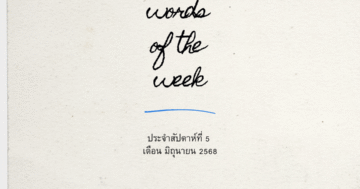 words
of the
week
ประจำสัปดาห์ที่ 5
เดือน มิถุนายน 2568